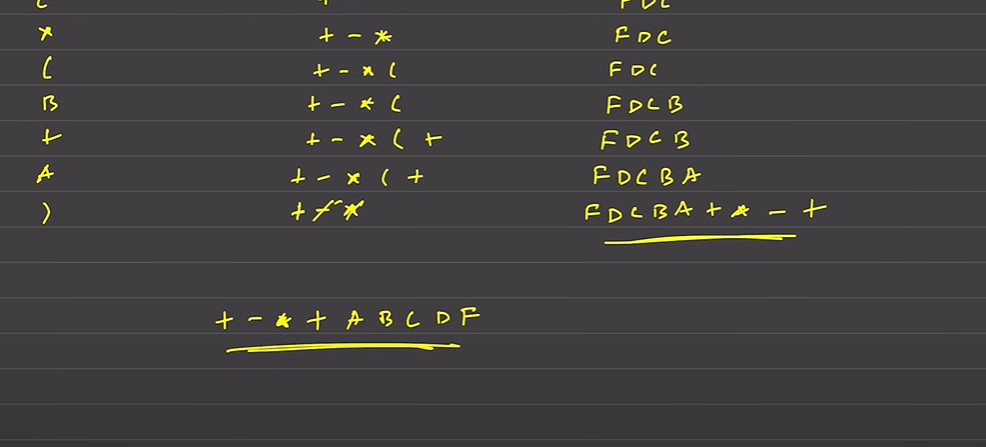 * + - * FDC
( + - * ( FDC
B + - * ( FDCB
+ + - * ( + FDCB
A + - * ( + FDCBA
) + - * FDCBA+*-+
+-*+ABCDF